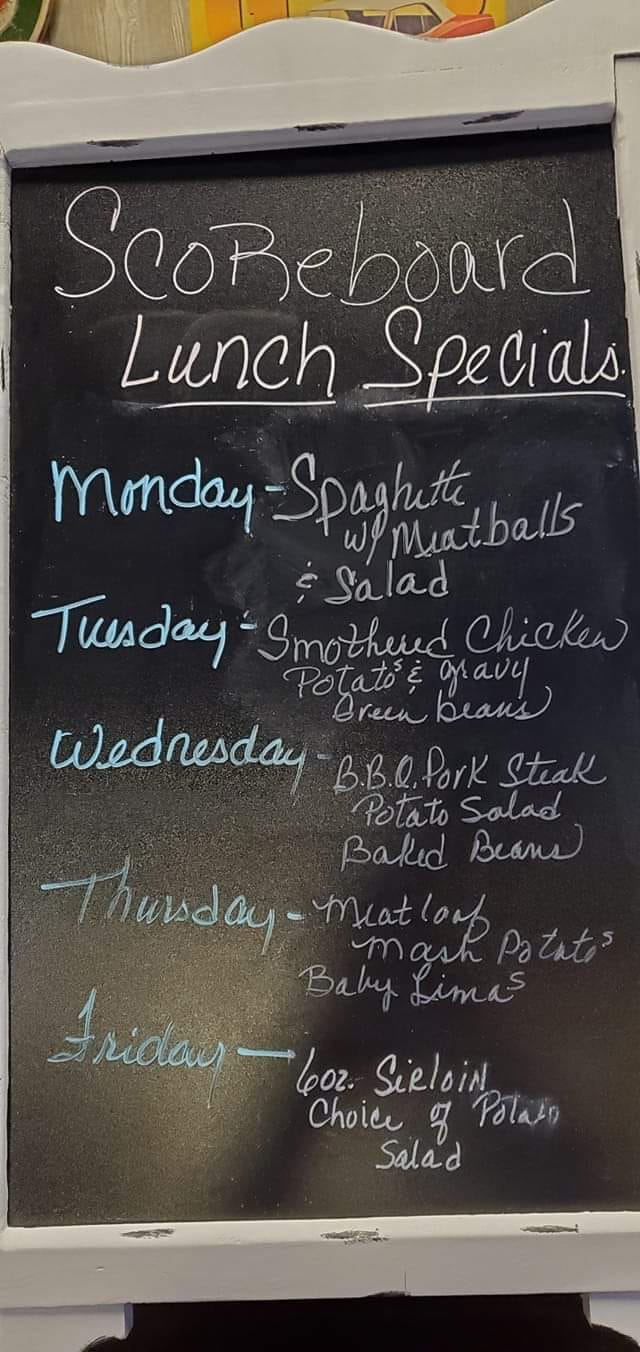 Scoreboard
Lunch Specials.
Monday - Spaghetti
w/ Meatballs
& Salad
Tuesday - Smothered Chicken
Potatos & gravy
Green beans
Wednesday - B.B.Q. Pork Steak
Potato Salad
Baked Beans
Thursday - Meatloaf
Mash Potatos
Baby Limas
Friday - 6oz. Sirloin
Choice of Potato
Salad